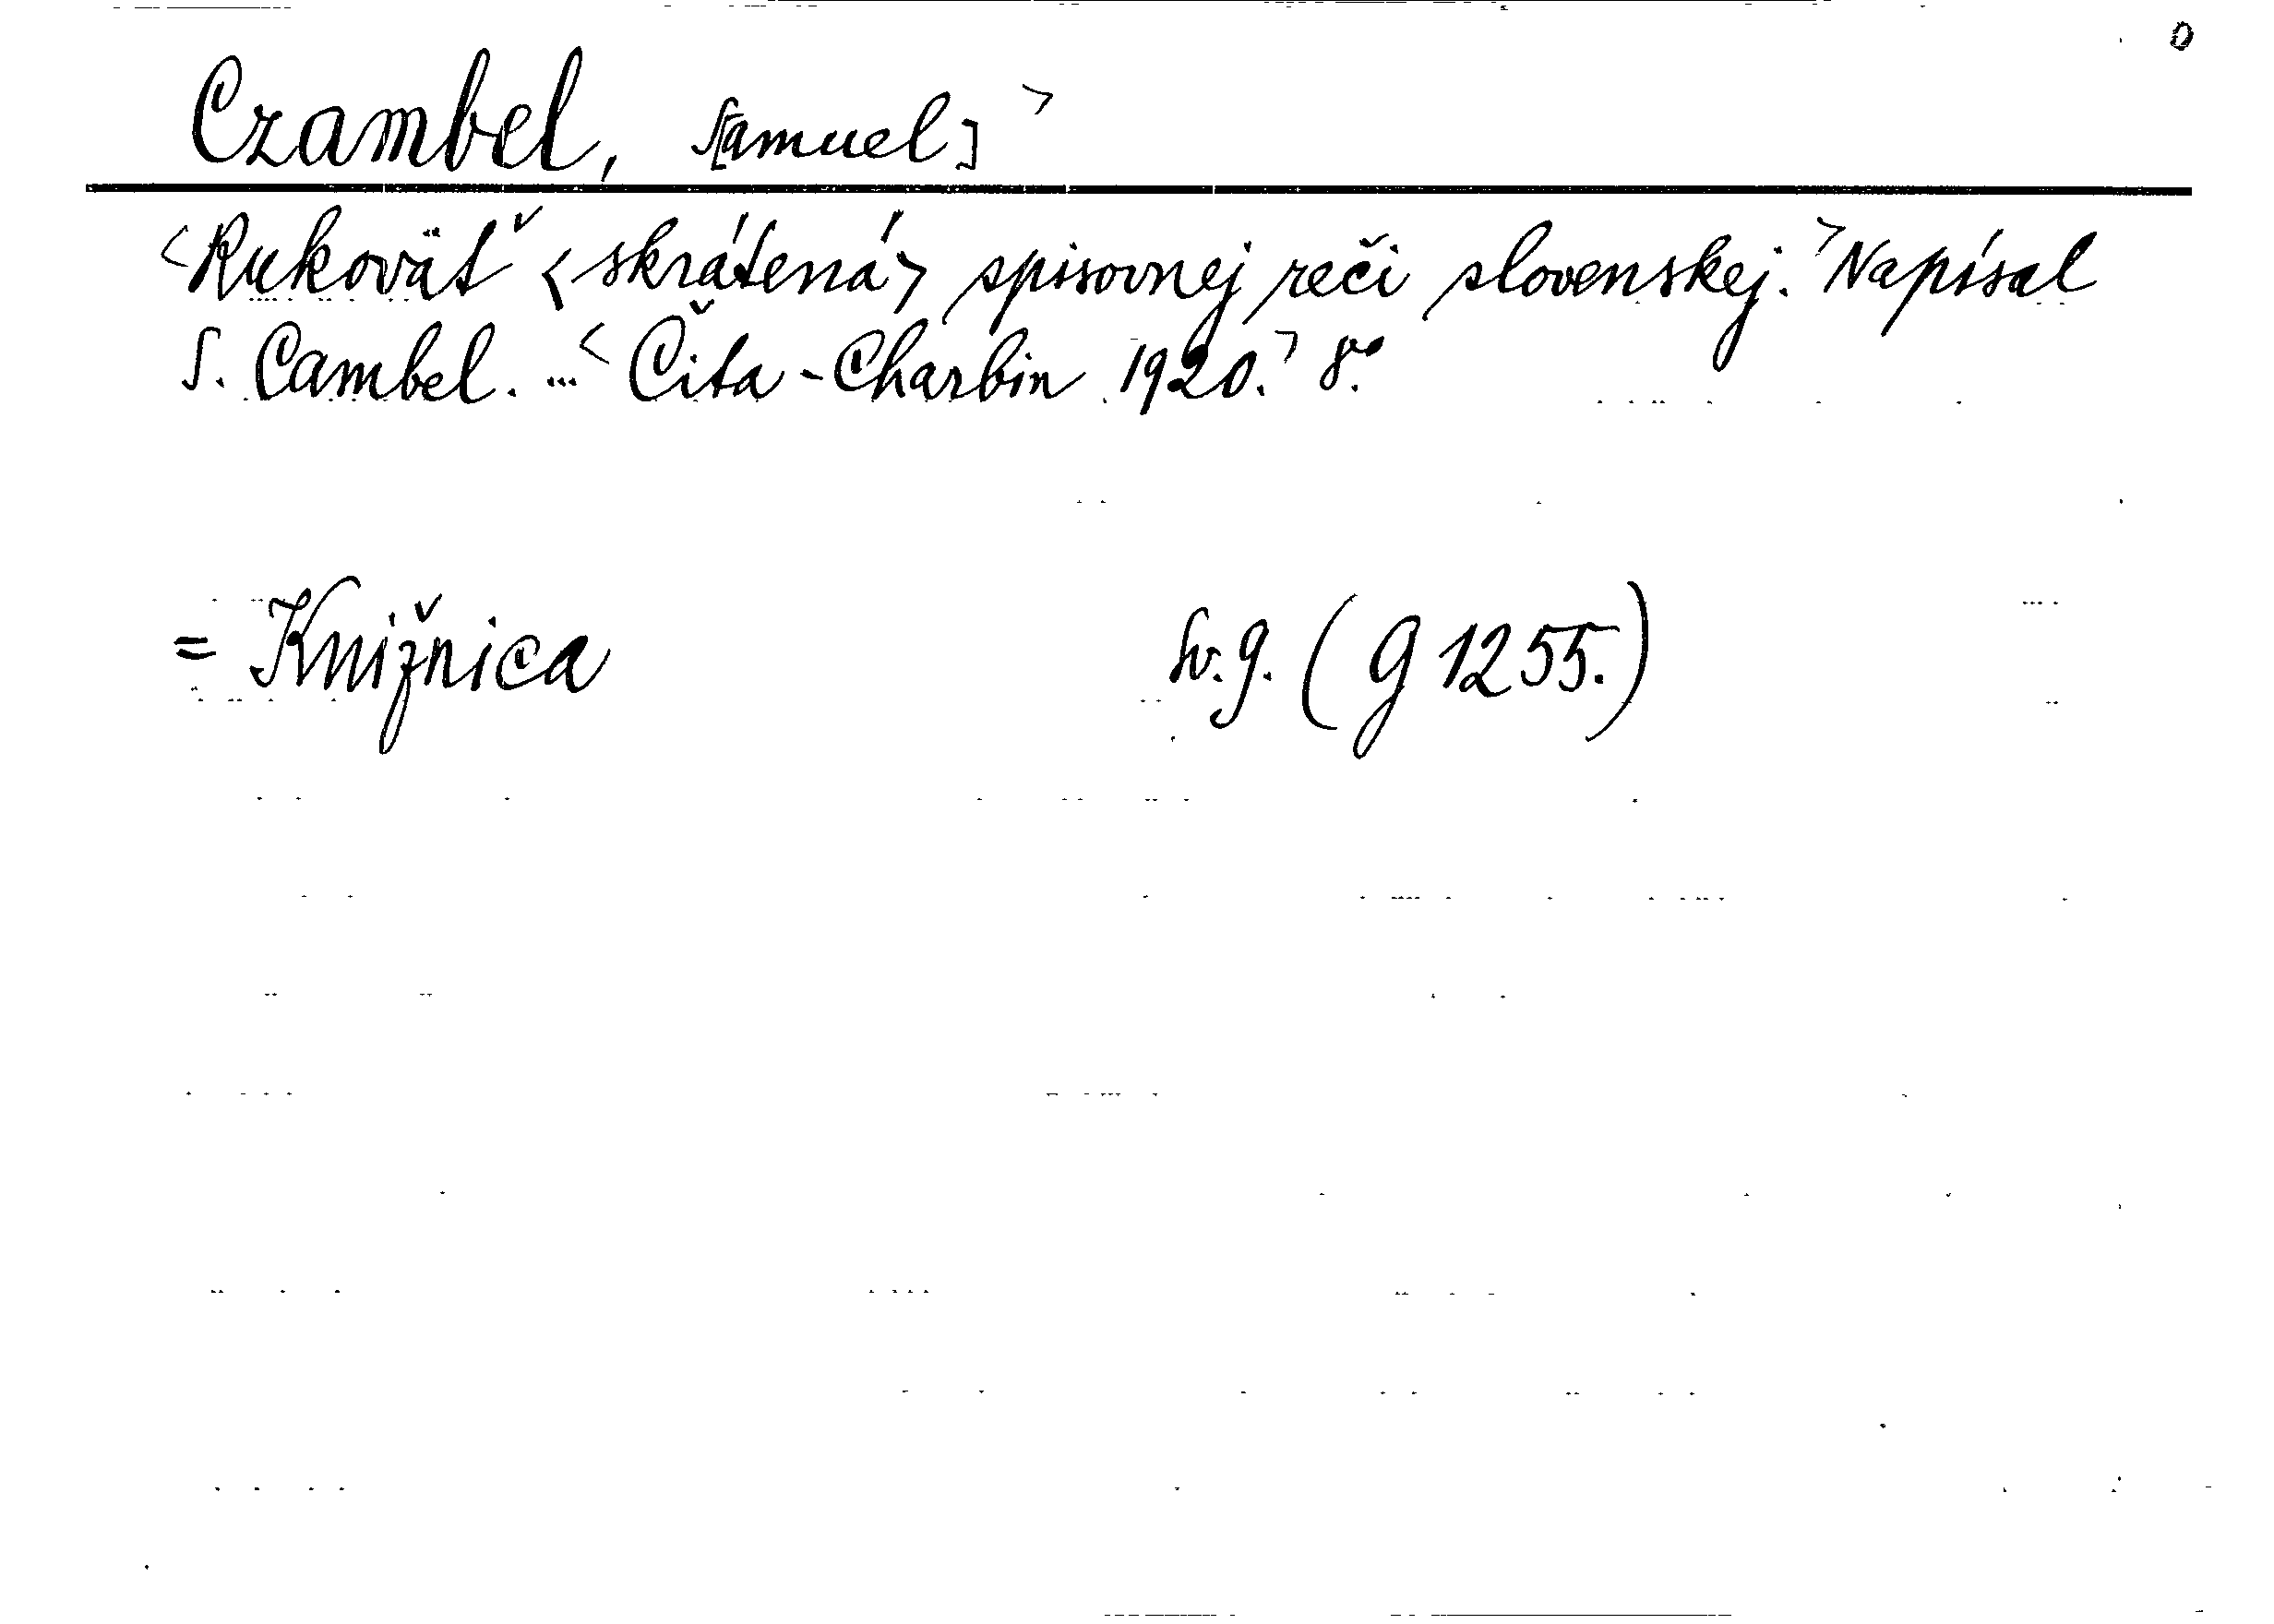 0
Czambel, S[amuel] >
<Rukoväť <skrátená> spisovnej reči slovenskej.> Napísal
S. Cambel. ... <Čita-Charbin 1920.> 8°.
= Knižnica sv. 9. (9 1255.)